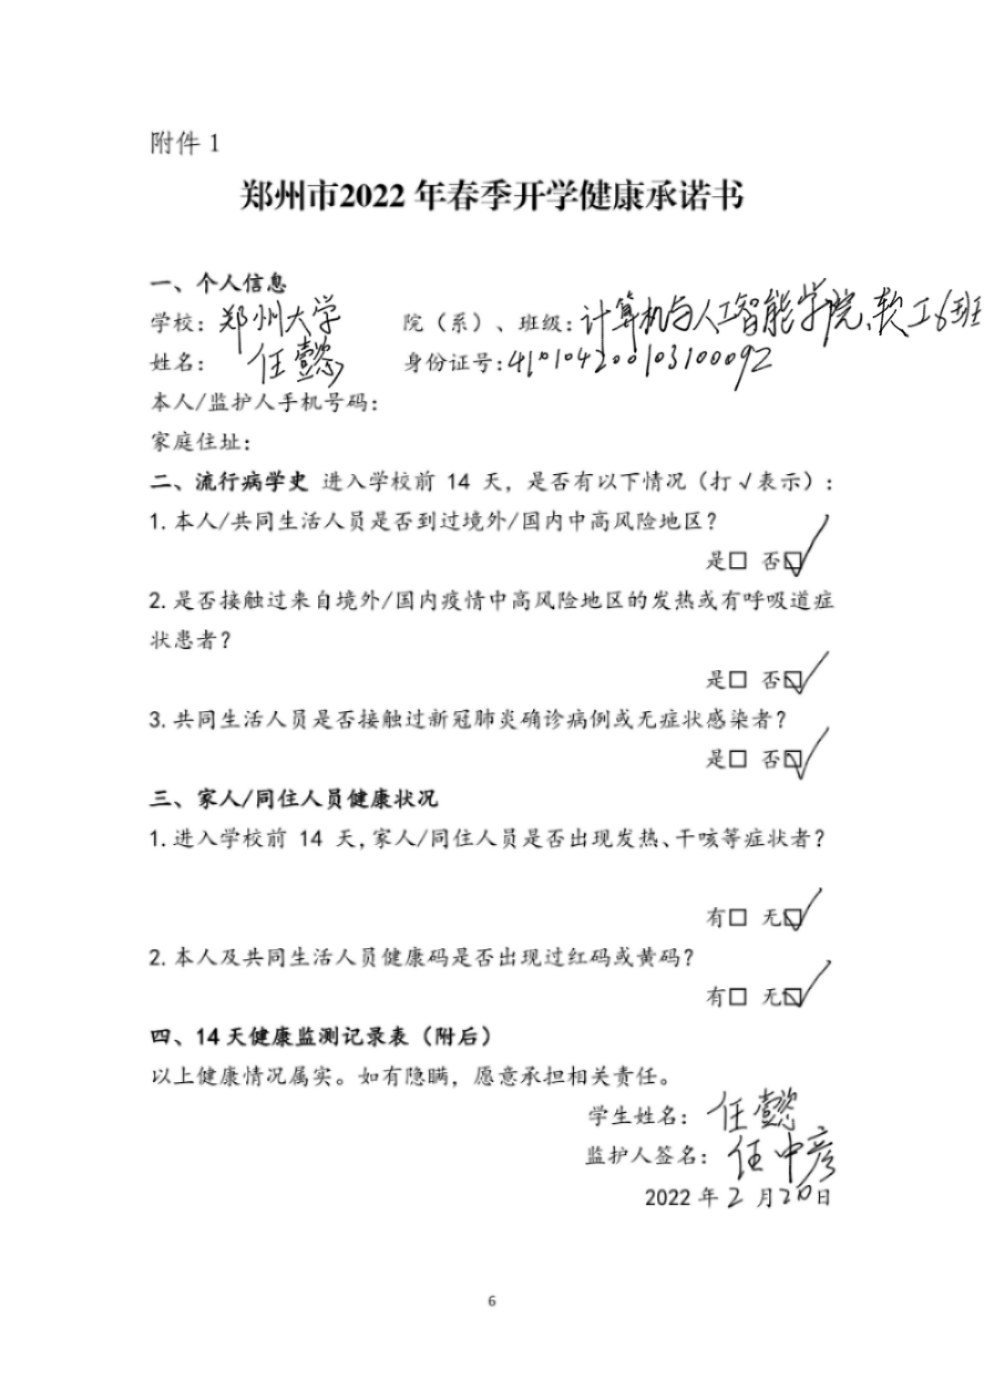 附件 1
郑州市2022 年春季开学健康承诺书
一、个人信息
学校：郑州大学 院（系）、班级：计算机与人工智能学院、软工6班
姓名： 任懿 身份证号：410104200103100092
本人/监护人手机号码：
家庭住址：
二、流行病学史 进入学校前 14 天，是否有以下情况（打√表示）：
1.本人/共同生活人员是否到过境外/国内中高风险地区？
是□ 否☑
2.是否接触过来自境外/国内疫情中高风险地区的发热或有呼吸道症
状患者？
是□ 否☑
3.共同生活人员是否接触过新冠肺炎确诊病例或无症状感染者？
是□ 否☑
三、家人/同住人员健康状况
1.进入学校前 14 天，家人/同住人员是否出现发热、干咳等症状者？
有□ 无☑
2.本人及共同生活人员健康码是否出现过红码或黄码？
有□ 无☑
四、14天健康监测记录表（附后）
以上健康情况属实。如有隐瞒，愿意承担相关责任。
学生姓名： 任懿
监护人签名： 任中彦
2022 年 2 月 20 日
6